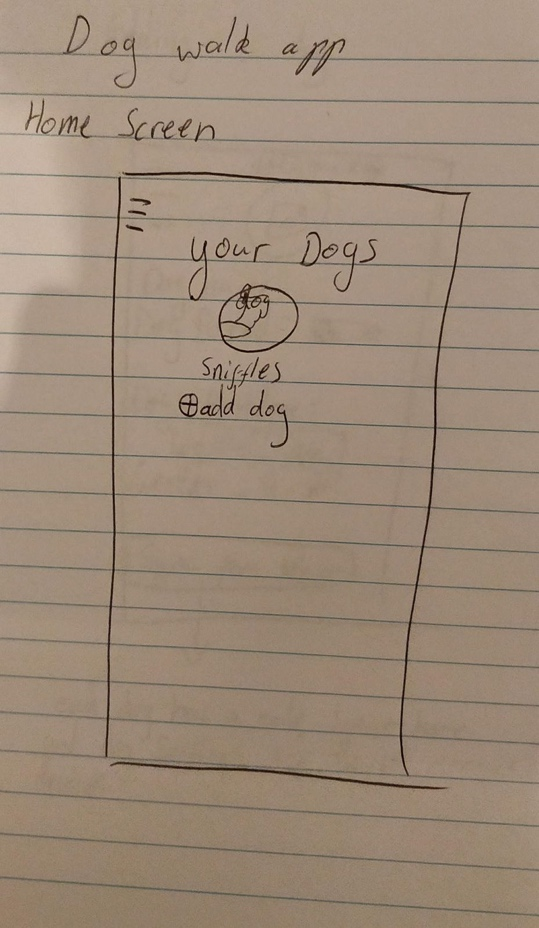 Dog walk app
Home Screen
your Dogs
dog
Sniffles
add dog